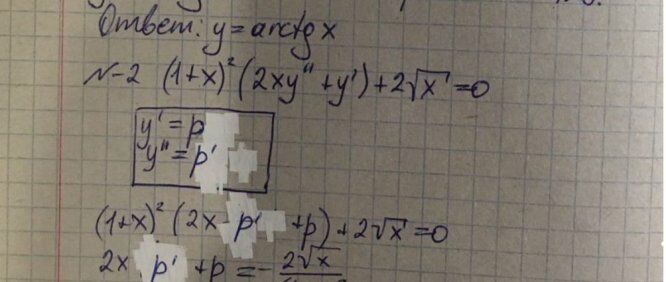 Ответ: y = arctg x
N-2 (1+x)² (2xy" + y') + 2√x = 0
y' = p
y" = p'
(1+x)² (2x p' + p) + 2√x = 0
2x p' + p = - 2√x